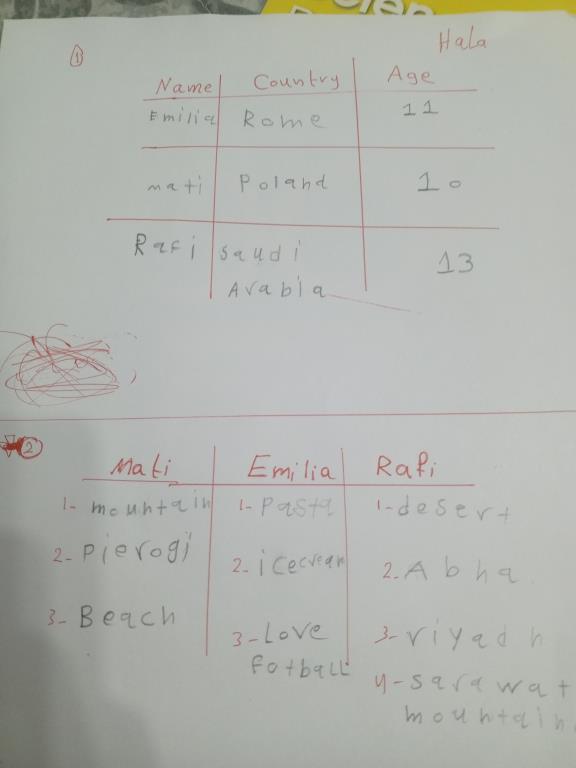 Hala
1
Name Country Age
Emilia Rome 11
mati Poland 10
Rafi saudi 13
Arabia
2
Mati Emilia Rafi
1- mountain 1- Pasta 1- desert
2- Pierogi 2- icecream 2. Abha
3- Beach 3- Love 3- riyadh
fotball 4- sarawat
mountain.